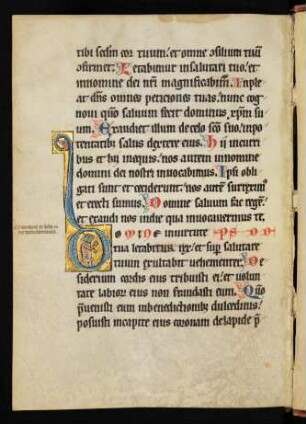 tibi sedm cor tuum. et omne osilium tuū
ofirmet. Letabimur in salutari tuo. et
in nomine dei nr̄i magnificabim᷒. Inple
at dn̄s omnes peticiones tuas. nunc cog
noui qm̄ saluum fecit dominus xp̄m su
um. Exaudiet illum de celo sc̄o suo. in po
tentatib᷒ salus dextere eius. Hij in curri
bus et hij in equis. nos autem in nomine
domini dei nostri inuocabimus. Ipsi obli
gati sunt et ceciderunt. nos autē surreximᷤ
et erecti sumus. Domine saluum fac regē.
et exaudi nos in die qua inuocauerimus te.
Domine in uirtute
tua letabitur rex. et sup̄ salutare
tuum exultabit uehementer. De
siderium cordis eius tribuisti ei. et uolun
tate labior᷒ eius non fraudasti eum. Qm̄
p̄uenisti eum in benedictionib᷒ dulcedinis.
posuisti in capite eius coronam de lapide p̄